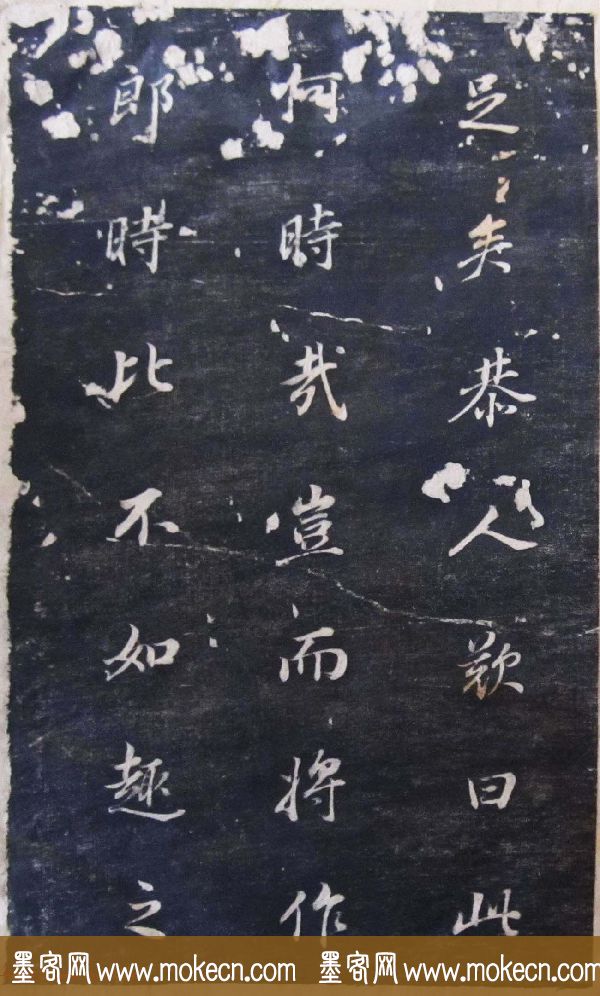 足矣恭人歎曰此
何時哉豈而將作
郎時比不如趣之
墨客网 www.mokecn.com 墨客网 www.mokecn.com